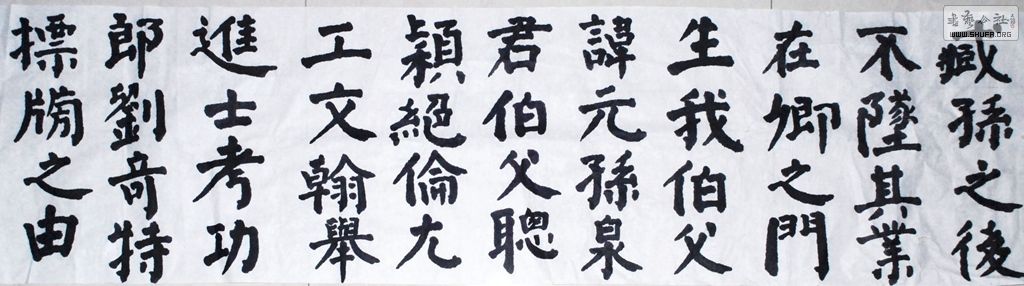 臧孫之後
不墜其業
在卿之門
生我伯父
諱元孫泉
君伯父聰
穎絕倫尤
工文翰舉
進士考功
郎劉奇特
標牓之由
书艺公社
WWW.SHUFA.ORG